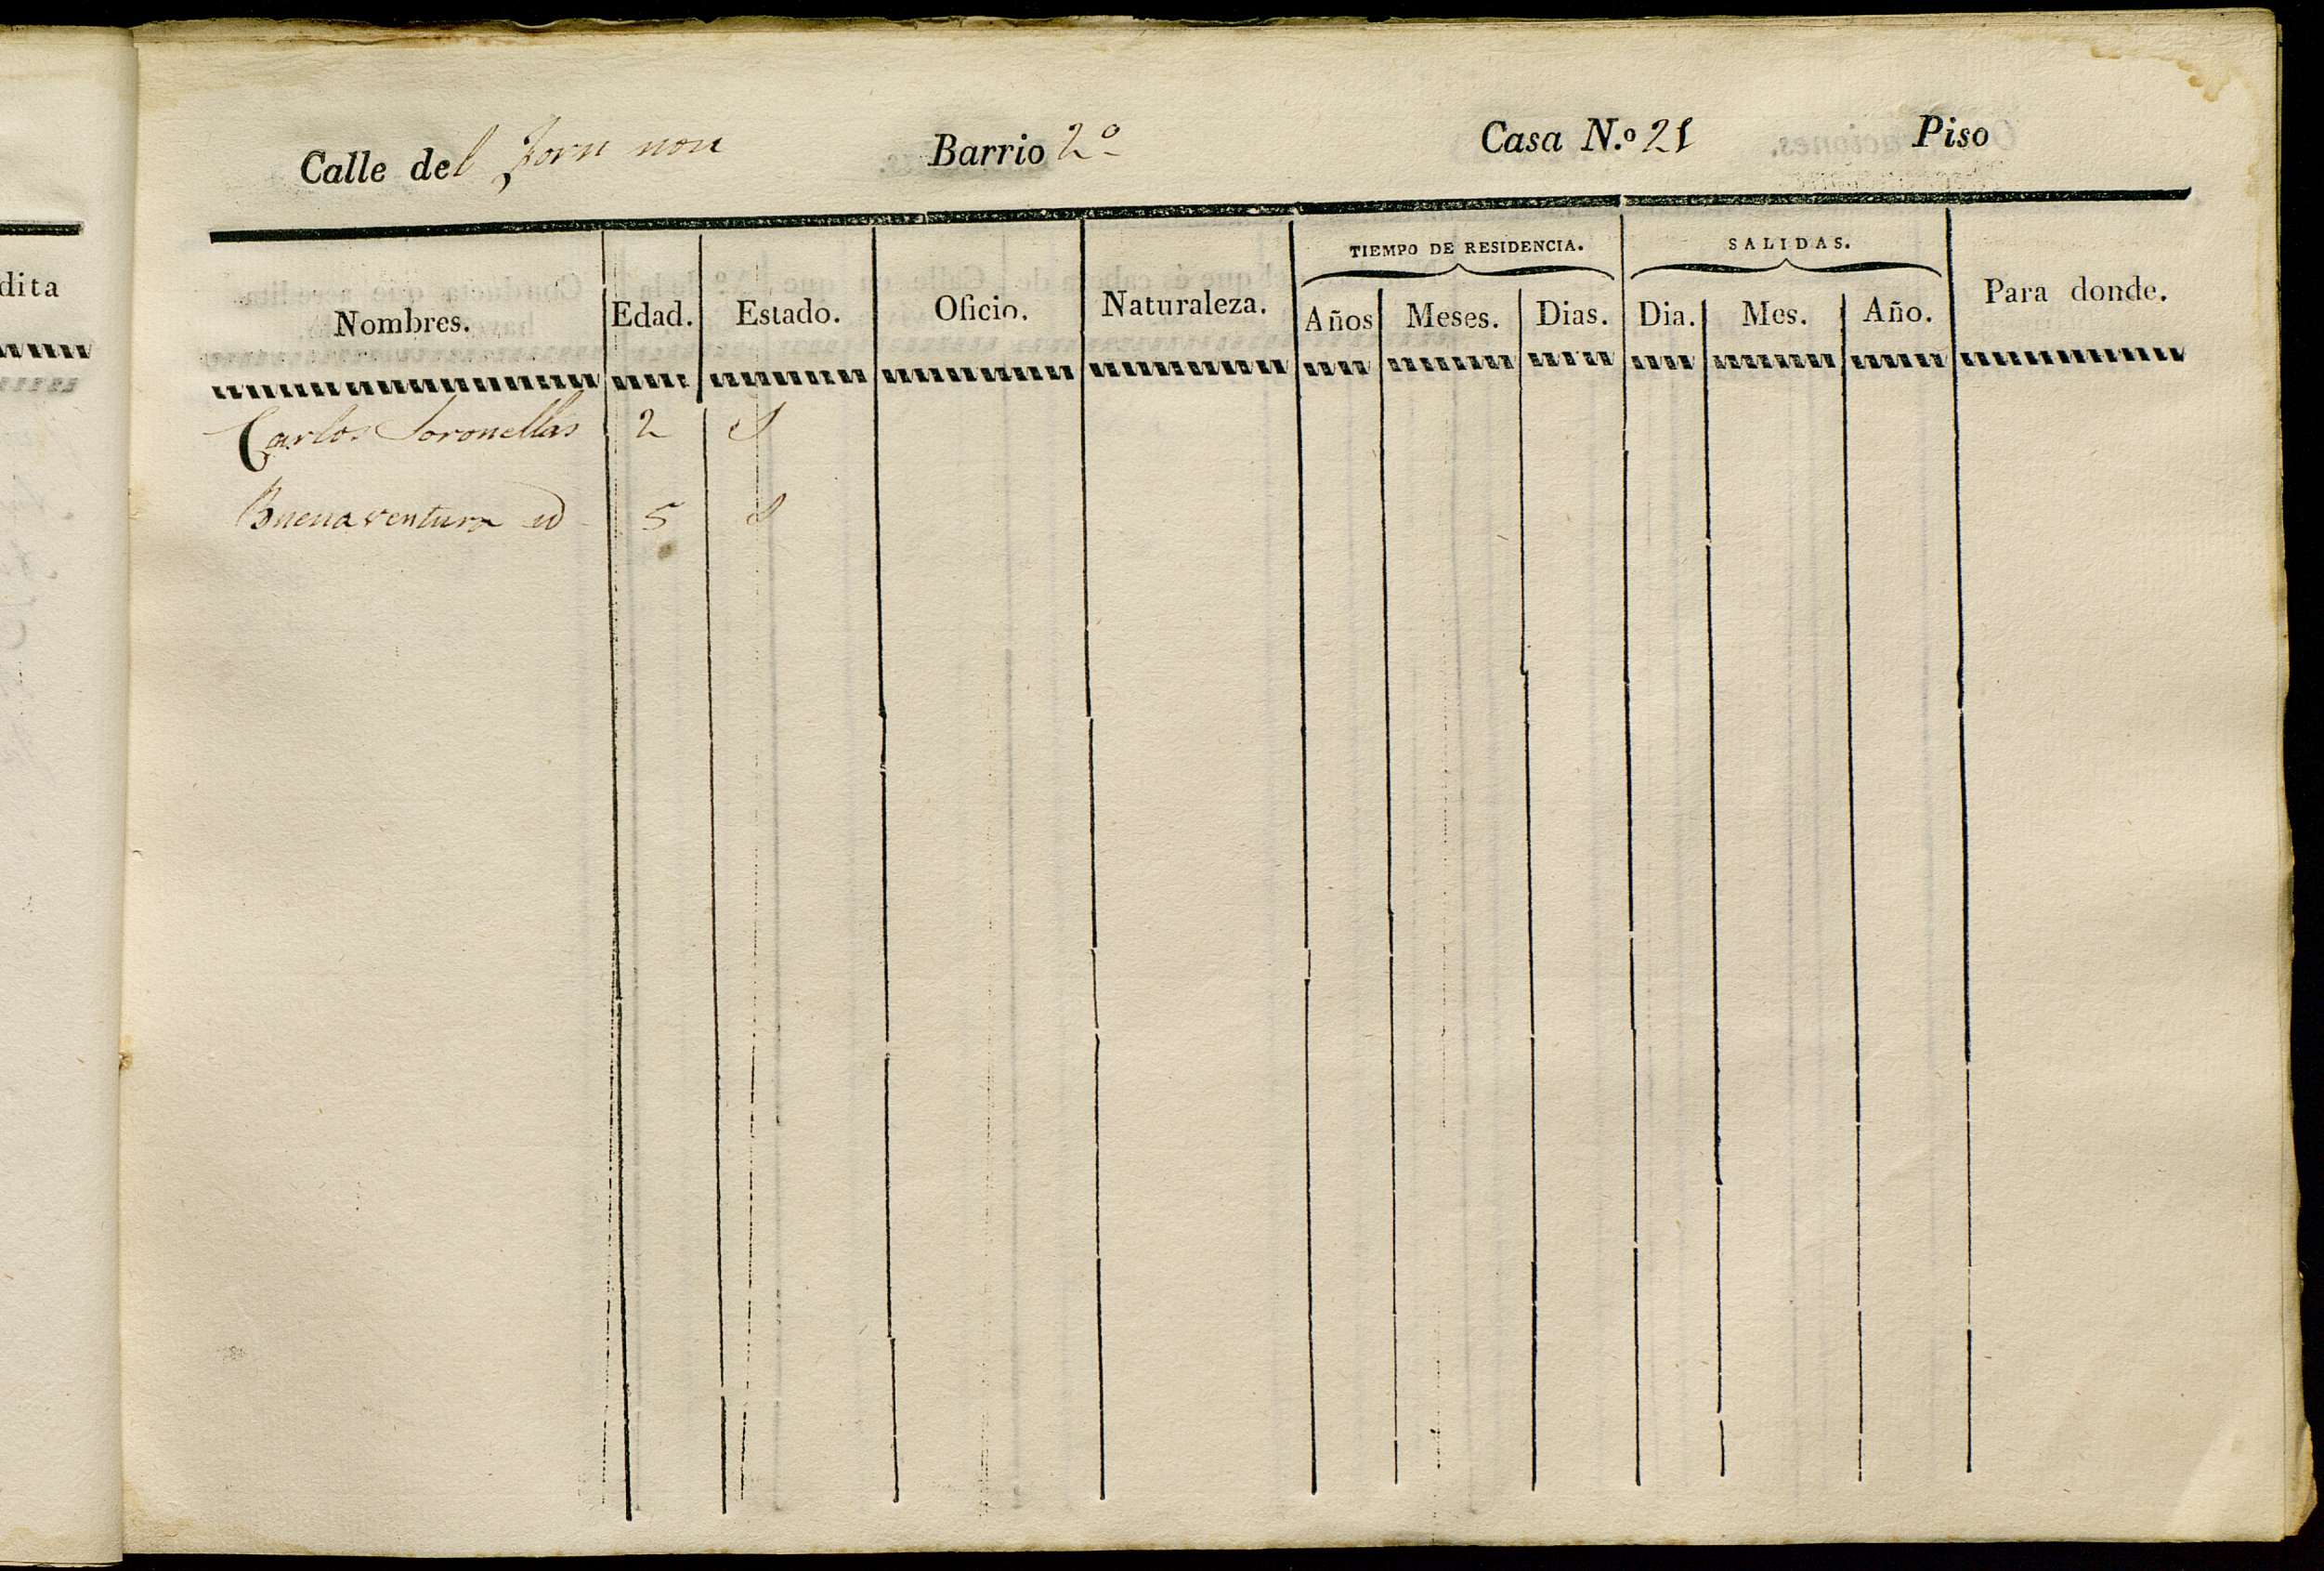 dita
Calle del Forn nou Barrio 2º Casa N.º 21 Piso
Nombres. Edad. Estado. Oficio. Naturaleza. TIEMPO DE RESIDENCIA. SALIDAS. Para donde.
Años Meses. Dias. Dia. Mes. Año.
Carlos Soronellas 2 S
Buenaventura id 5 S